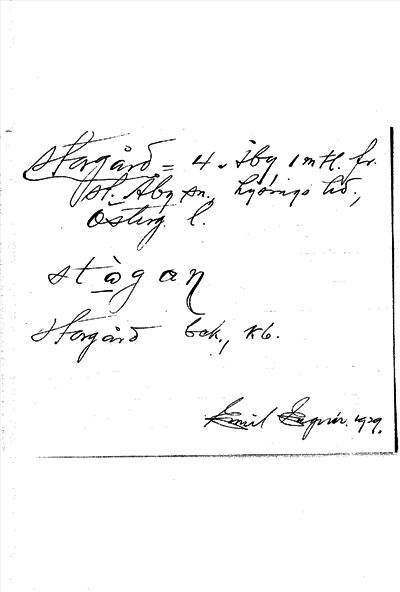 Storgård = 4. Åby 1 mtl. fr.
St. Åby sn, Lysings hd.,
Österg. l.
sto̱̊̀gaη
Storgård bek., kb.
Emil 1929.